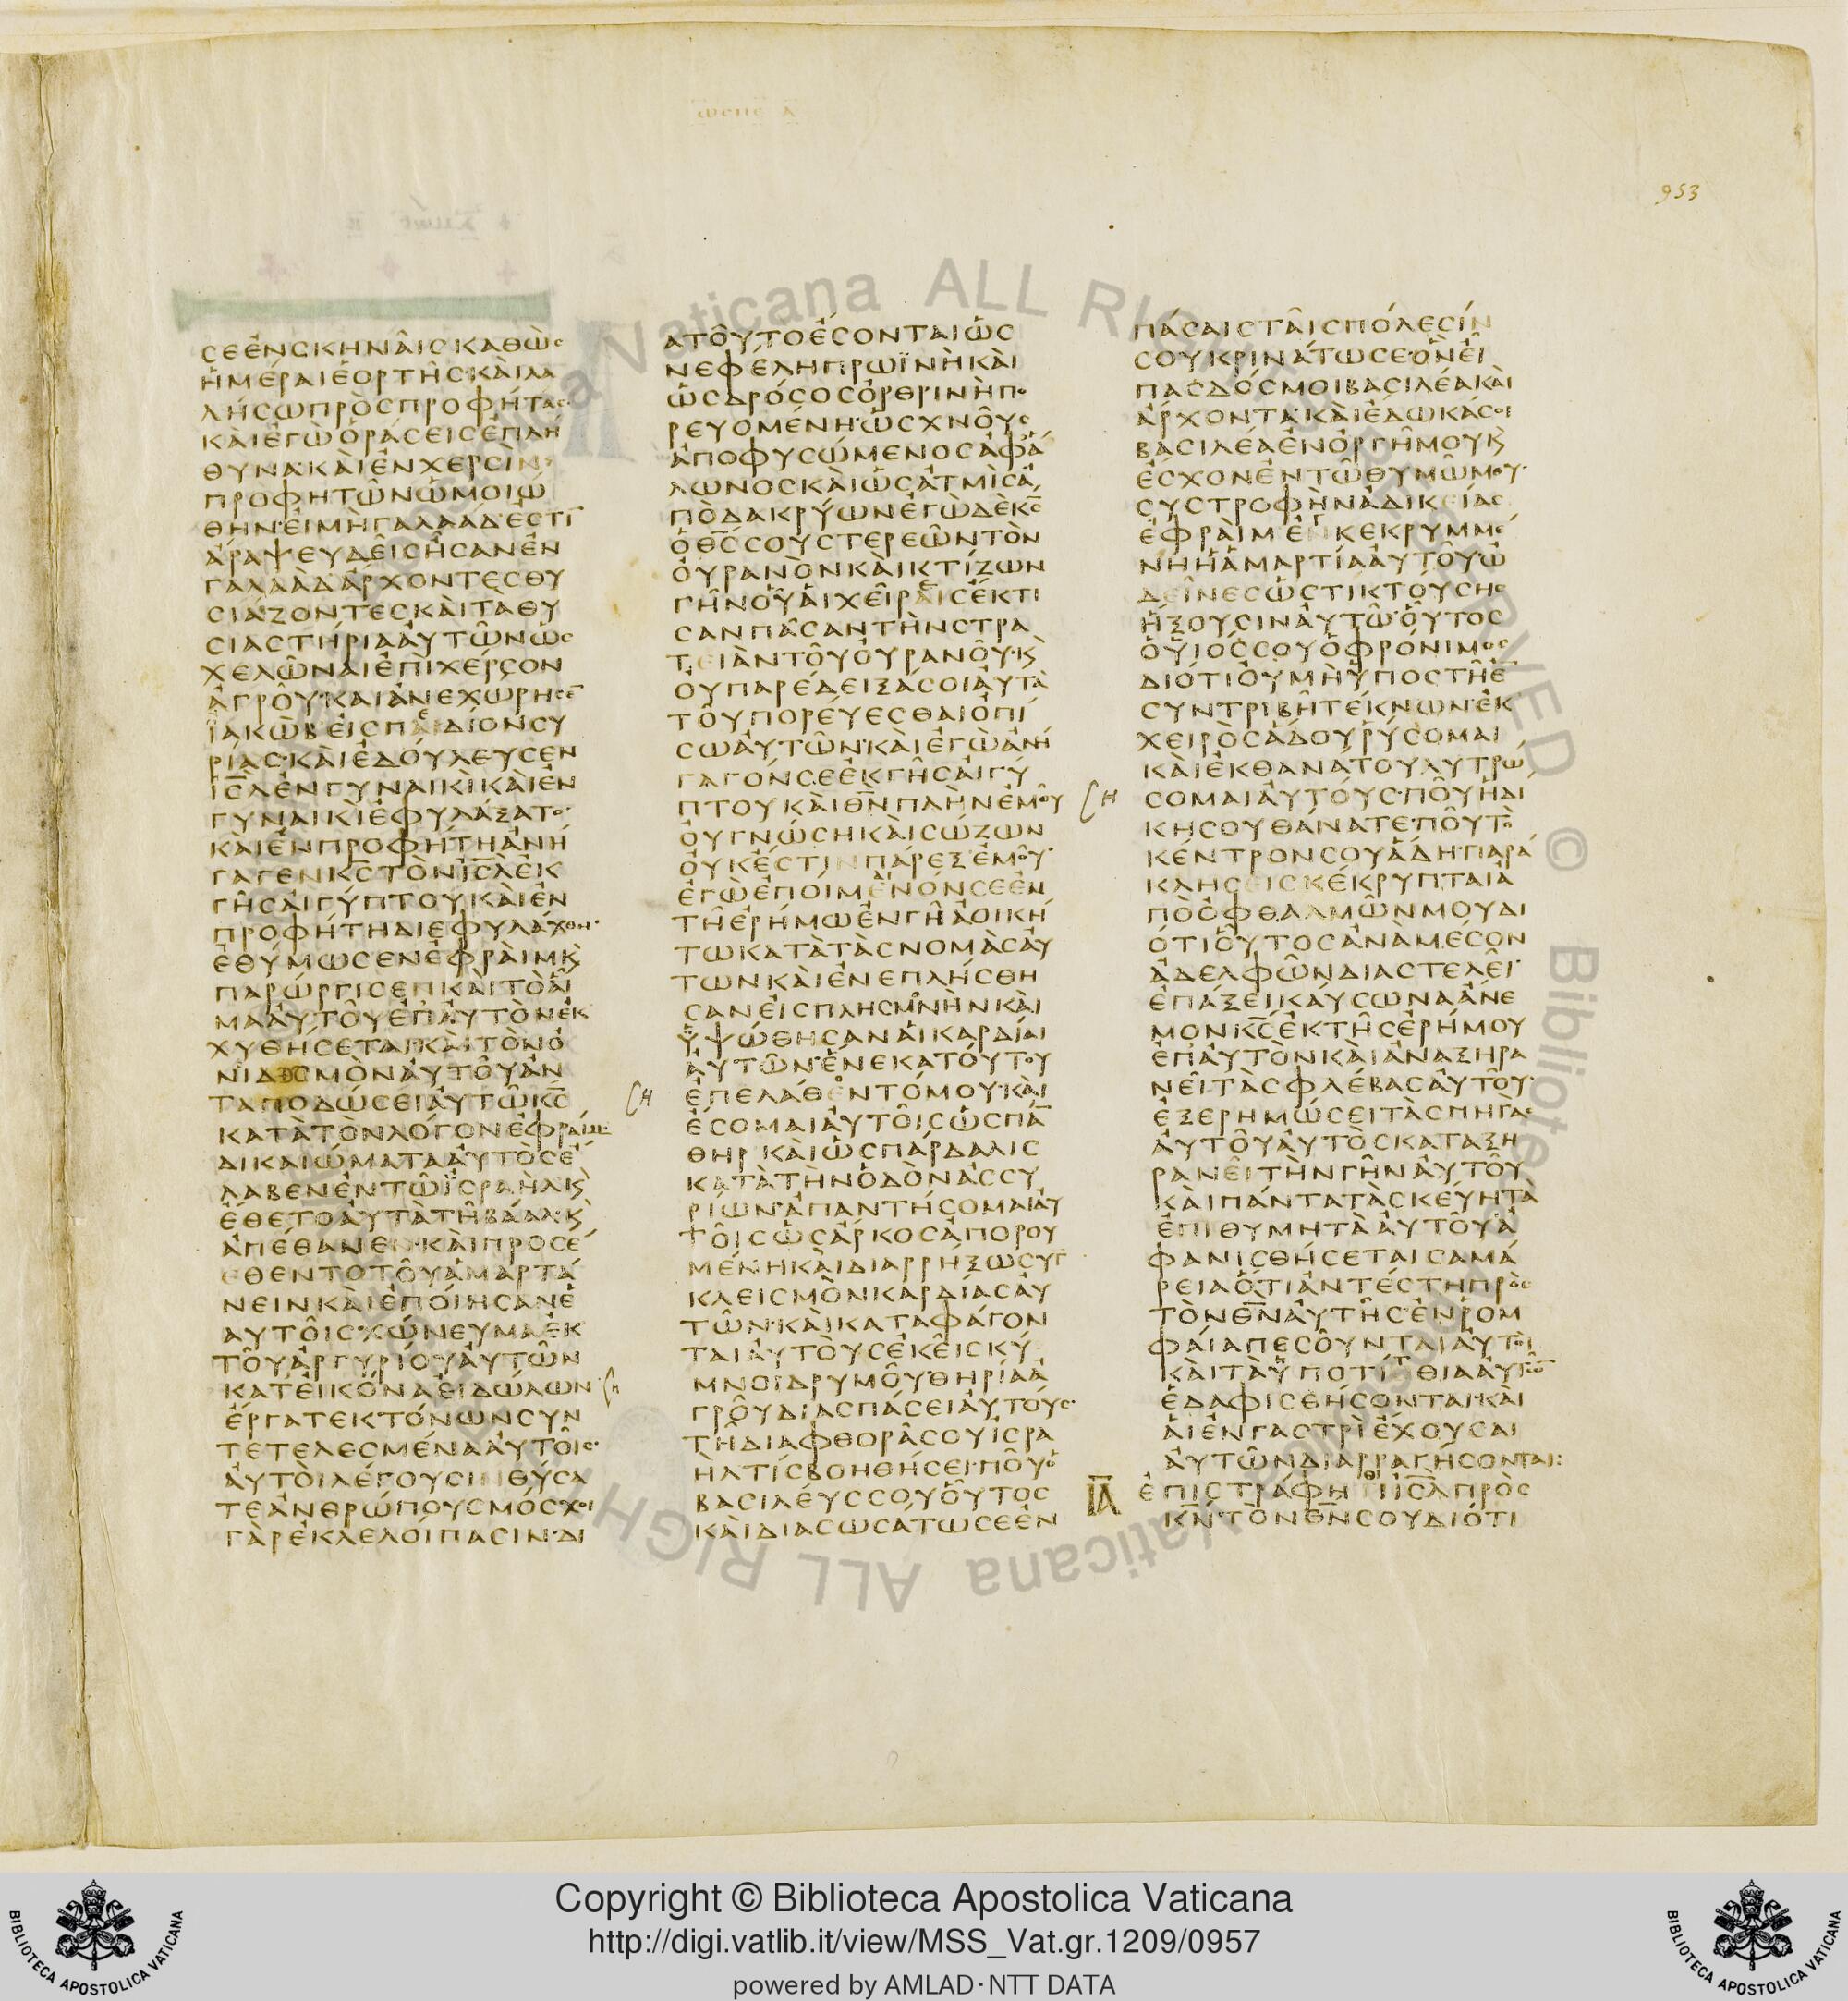 ωσηε λ
953
σε ἐν σκηναῖς καθὼς
ἡμέραι ἑορτῆς· καὶ λα
λήσω πρὸς προφήτας·
καὶ ἐγὼ ὁράσεις ἐπλη
θυνα· καὶ ἐν χερσὶν
προφητῶν ὡμοιώ
θην· εἰ μὴ γαλαάδ ἐστῑ
ἄρα ψευδεῖς ἦσαν ἐν
γαλαὰδ ἄρχοντες θυ
σιάζοντες καὶ τὰ θυ
σιαστήρια αὐτῶν ὡς
χελῶναι ἐπὶ χέρσον
ἀγροῦ· καὶ ἀνεχώρησε̄
ἰακὼβ εἰς πεδίον συ
ρίας· καὶ ἐδούλευσεν
ι̅σ̅λ̅ ἐν γυναικὶ καὶ ἐν
γυναικὶ ἐφυλάξατο·
καὶ ἐν προφήτῃ ἀνή
γαγεν κ̅ς̅ τὸν ι̅σ̅λ̅ ἐκ
γῆς αἰγύπτου καὶ ἐν
προφήτῃ διεφυλάχθη·
ἐθύμωσεν ἐφράιμ κ̀
παρώργισεν καὶ τὸ αἷ
μα αὐτοῦ ἐπ' αὐτὸν ἐκ
χυθήσεται· καὶ τὸν ὀ
νιδισμὸν αὐτοῦ ἀν
ταποδώσει αὐτῷ κ̅ς̅
κατὰ τὸν λόγον ἐφράιμ·
δικαιώματα αὐτὸς ἔ
λαβεν ἐν τῷ ἰσραὴλ κ̀
ἔθετο αὐτὰ τῇ βάαλ· κ̀
ἀπέθανεν· καὶ προσέ
θεντο τοῦ ἁμαρτά
νειν καὶ ἐποίησαν ἑ
αυτοῖς χώνευμα ἐκ
τοῦ ἀργυρίου αὐτῶν
κατ' εἰκόνα εἰδώλων
ἔργα τεκτόνων συν
τετελεσμένα αὐτοῖς·
αὐτοὶ λέγουσιν θύσα
τε ἀνθρώπους μόσχοι
γὰρ ἐκλελοίπασιν· δι
ὰ τοῦτο ἔσονται ὡς
νεφέλη πρωϊνὴ καὶ
ὡς δρόσος ὀρθρινὴ πο
ρευομένη· ὡς χνοῦς
ἀποφυσώμενος ἀφ' ἅ
λωνος καὶ ὡς ἀτμὶς ἀ
πὸ δακρύων ἐγὼ δὲ κ̅ς̅
ὁ θ̅ς̅ σου στερεῶν τὸν
οὐρανὸν καὶ κτίζων
γῆν οὗ αἱ χεῖρες ἔκτι
σαν πᾶσαν τὴν στρα
τειὰν τοῦ οὐρανοῦ· κ̀
οὐ παρέδειξά σοι αὐτὰ
τοῦ πορεύεσθαι ὀπί
σω αὐτῶν· καὶ ἐγὼ ἀνή
γαγόν σε ἐκ γῆς αἰγύ
πτου καὶ θ̅ν̅ πλὴν ἐμοῦ
οὐ γνώσῃ καὶ σώζων
οὐκ ἔστιν πάρεξ ἐμοῦ·
ἐγὼ ἐποίμαινόν σε ἐν
τῇ ἐρήμῳ ἐν γῇ ἀοική
τῳ κατὰ τὰς νομὰς αὐ
τῶν καὶ ἐνεπλήσθη
σαν εἰς πλησμονὴν καὶ
ὑψώθησαν αἱ καρδίαι
αὐτῶν· ἕνεκα τούτου
ἐπελάθοντό μου· καὶ
ἔσομαι αὐτοῖς ὡς πα̅
θηρ καὶ ὡς πάρδαλις
κατὰ τὴν ὁδὸν ἀσσυ
ρίων· ἀπαντήσομαι αὐ
τοῖς ὡς ἄρκος ἀπορου
μένη καὶ διαρρήξω συγ
κλεισμὸν καρδίας αὐ
τῶν· καὶ καταφάγον
ται αὐτοὺς ἐκεῖ σκύ
μνοι δρυμοῦ· θηρία ἀ
γροῦ διασπάσει αὐτούς·
τῇ διαφθορᾷ σου ἰσρα
ὴλ τίς βοηθήσει· ποῦ ὁ
βασιλεύς σου οὗτος
καὶ διασωσάτω σε ἐν
πάσαις ταῖς πόλεσίν
σου κρινάτω σε· ὃν εἶ
πας δός μοι βασιλέα καὶ
ἄρχοντα· καὶ ἔδωκά σοι
βασιλέα ἐν ὀργῇ μου κ̀
ἔσχον ἐν τῷ θυμῷ μου·
συστροφὴν ἀδικείας
ἐφράιμ ἐγκεκρυμμέ
νη ἡ ἁμαρτία αὐτοῦ· ὠ
δεῖνες ὡς τικτούσης
ἥξουσιν αὐτῷ· οὗτος
ὁ υἱός σου ὁ φρόνιμος
διότι οὐ μὴ ὑποστῇ ἐ̅
συντριβῇ τέκνων· ἐκ
χειρὸς ἅδου ῥύσομαι
καὶ ἐκ θανάτου λυτρώ
σομαι αὐτούς· ποῦ ἡ δί
κη σου θάνατε· ποῦ τὸ
κέντρον σου ἅδη· παρά
κλησεις κέκρυπται ἀ
πὸ ὀφθαλμῶν μου· δι
ότι οὗτος ἀνὰ μέσον
ἀδελφῶν διαστελεῖ·
ἐπάξει καύσωνα ἄνε
μον κ̅ς̅ ἐκ τῆς ἐρήμου
ἐπ' αὐτὸν καὶ ἀναξηρα
νεῖ τὰς φλέβας αὐτοῦ·
ἐξερημώσει τὰς πηγὰς
αὐτοῦ αὐτὸς καταξη
ρανεῖ τὴν γῆν αὐτοῦ
καὶ πάντα τὰ σκεύη τὰ
ἐπιθυμητὰ αὐτοῦ· ἀ
φανισθήσεται σαμά
ρεια ὅτι ἀντέστη πρὸς
τὸν θ̅ν̅ αὐτῆς· ἐν ῥομ
φαίᾳ πεσοῦνται αὐτοὶ
καὶ τὰ ὑποτίτθια αὐτῶ̅
ἐδαφισθήσονται· καὶ
αἱ ἐν γαστρὶ ἔχουσαι
αὐτῶν διαρραγήσονται:
ΙΑ ἐπιστράφηθι ι̅σ̅λ̅ πρὸς
κ̅ν̅ τὸν θ̅ν̅ σου διότι
Copyright © Biblioteca Apostolica Vaticana
http://digi.vatlib.it/view/MSS_Vat.gr.1209/0957
powered by AMLAD·NTT DATA
BIBLIOTECA APOSTOLICA VATICANA
BIBLIOTECA APOSTOLICA VATICANA